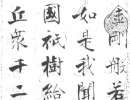 金剛般若
如是我聞
國祇樹給
丘衆千二